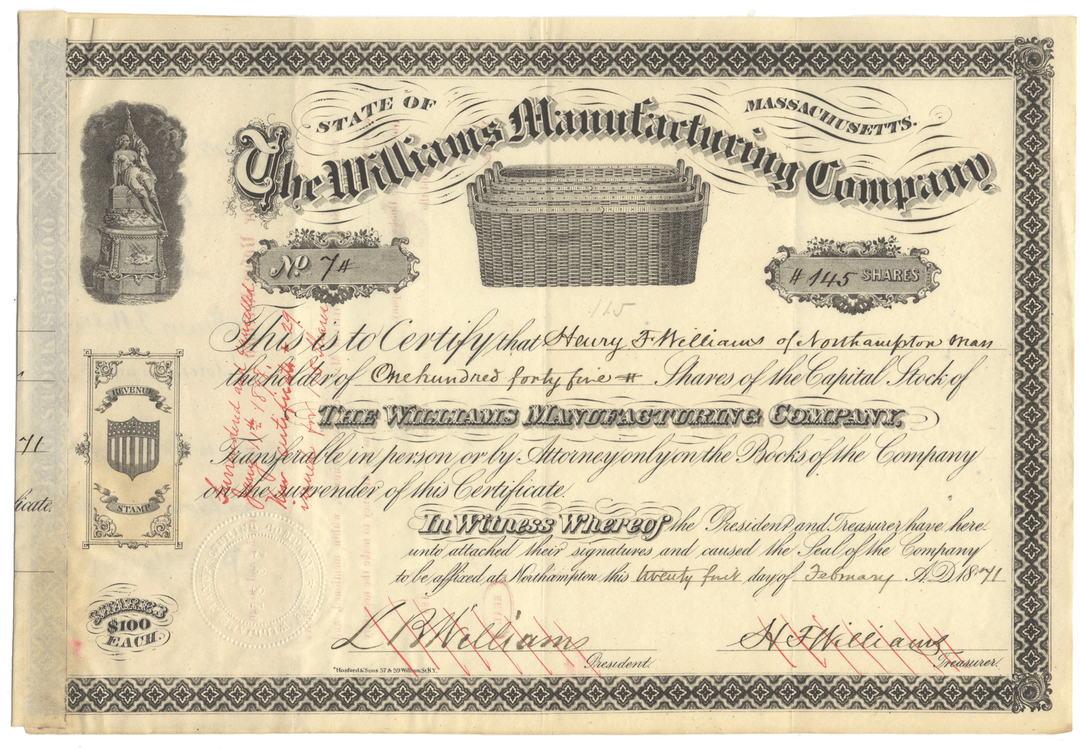 STATE OF MASSACHUSETTS.
The Williams Manufacturing Company
No 74
# 145 SHARES
115
This is to Certify that Henry F Williams of Northampton Mass
the holder of One hundred forty five # Shares of the Capital Stock of
THE WILLIAMS MANUFACTURING COMPANY,
Transferable in person or by Attorney only on the Books of the Company
on the surrender of this Certificate.
In Witness Whereof the President and Treasurer have here-
unto attached their signatures and caused the Seal of the Company
to be affixed at Northampton this twenty first day of February A.D. 1871
L B Williams
President.
H F Williams
Treasurer.
Hosford & Sons 57 & 59 William St. N.Y.
REVENUE
STAMP
SHARES
$100
EACH.
Surrendered and Cancelled
New Certificate
issued for
71
icate.